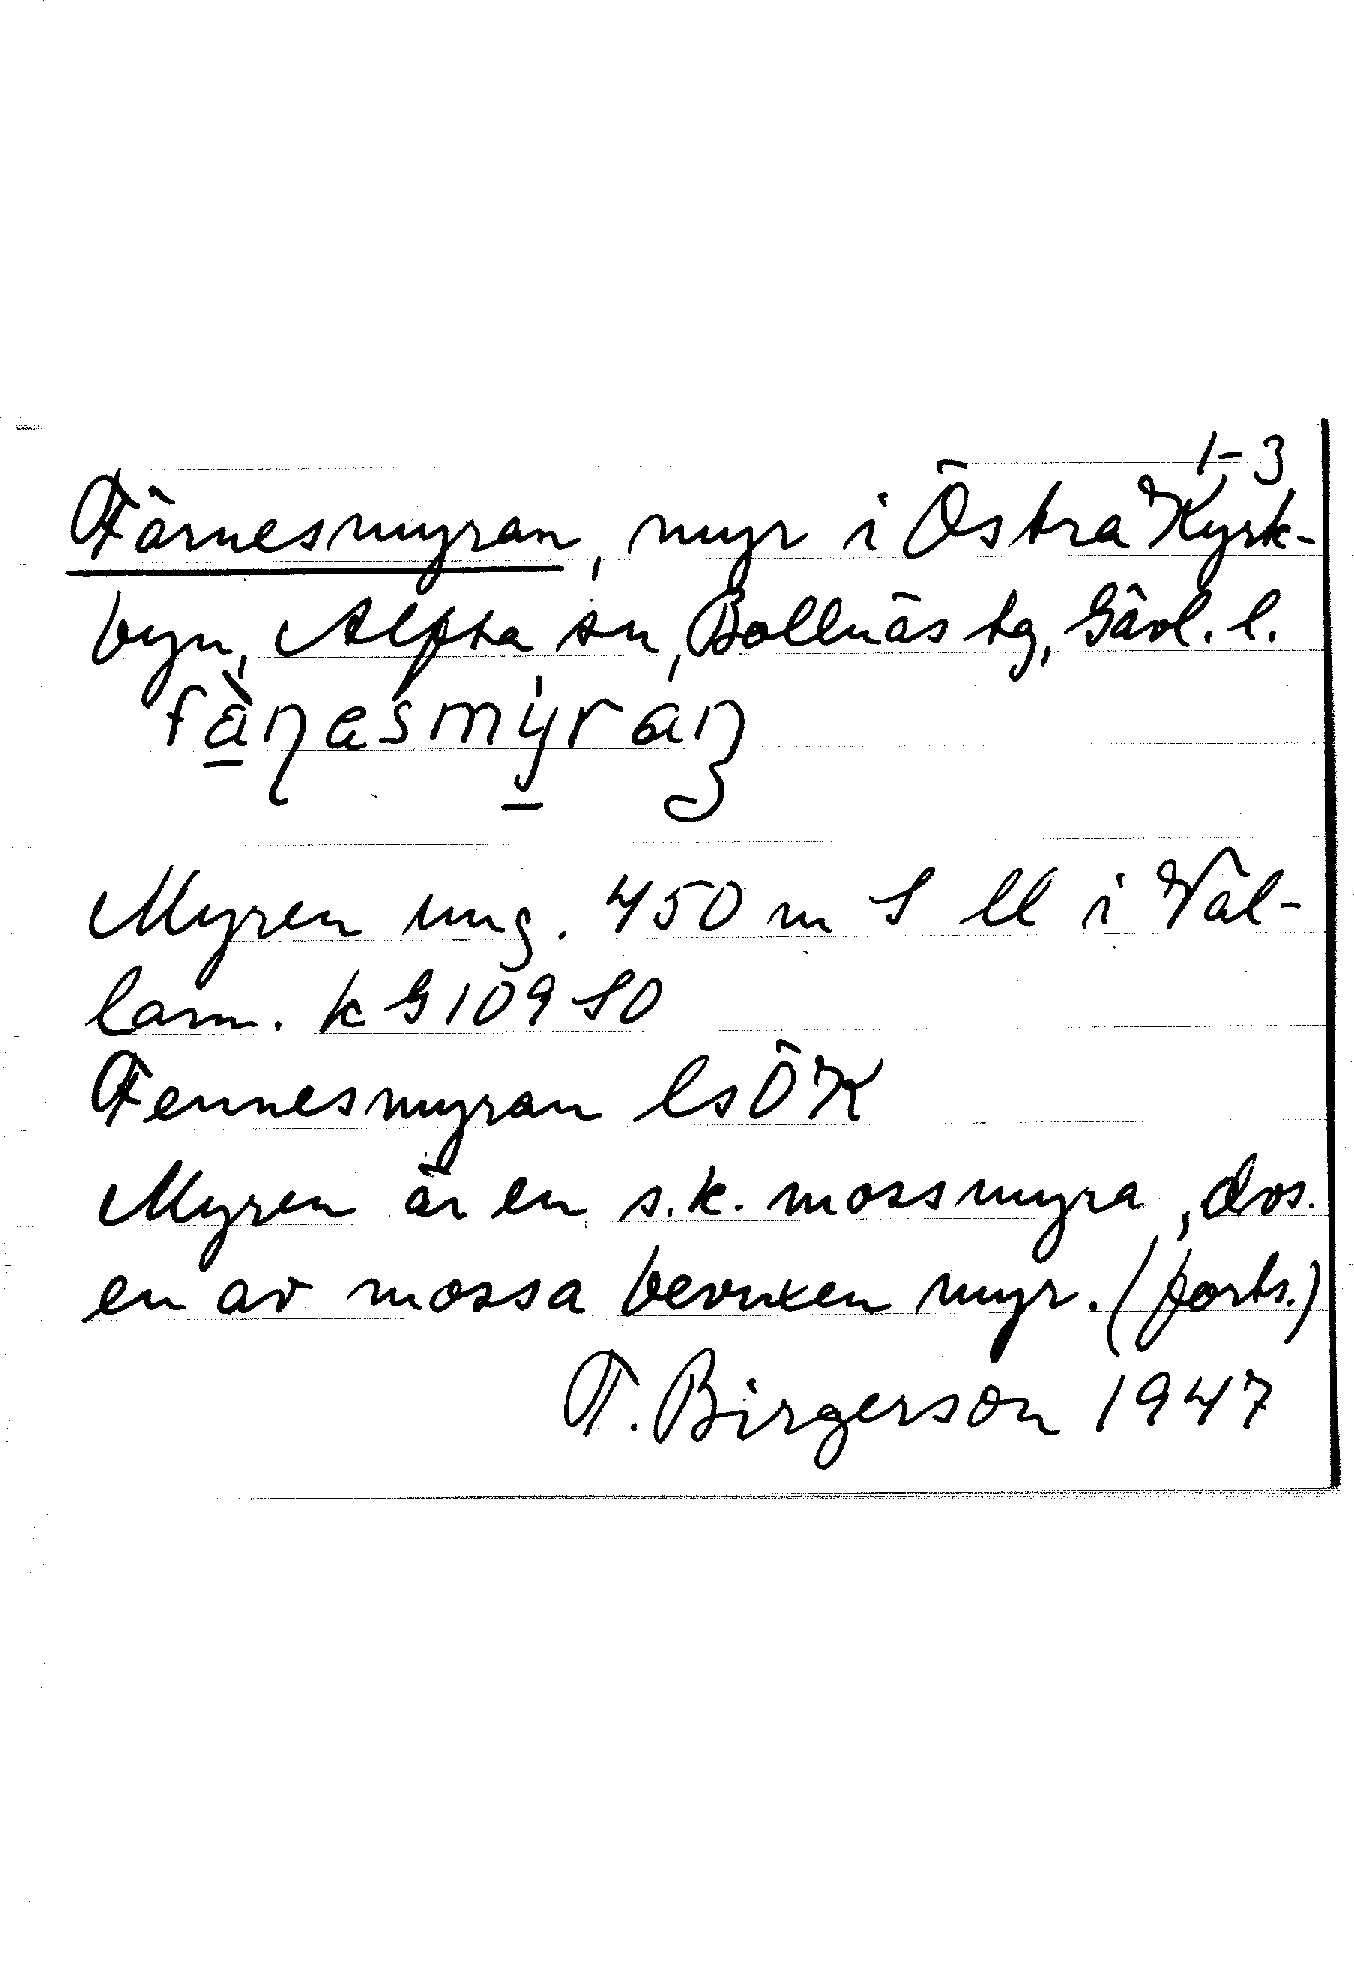 1-3
Färnesmyran, myr i Östra Kyrk-
byn, Alfta sn, Bollnäs tg, Gävl. l.
Myren ung. 450 m S ll i Väl-
lam. k G 109 SO
Fennesmyran ls ÖK
Myren är en s.k. mossmyra, dvs.
en av mossa bevuxen myr. (forts.)
T. Birgerson 1947